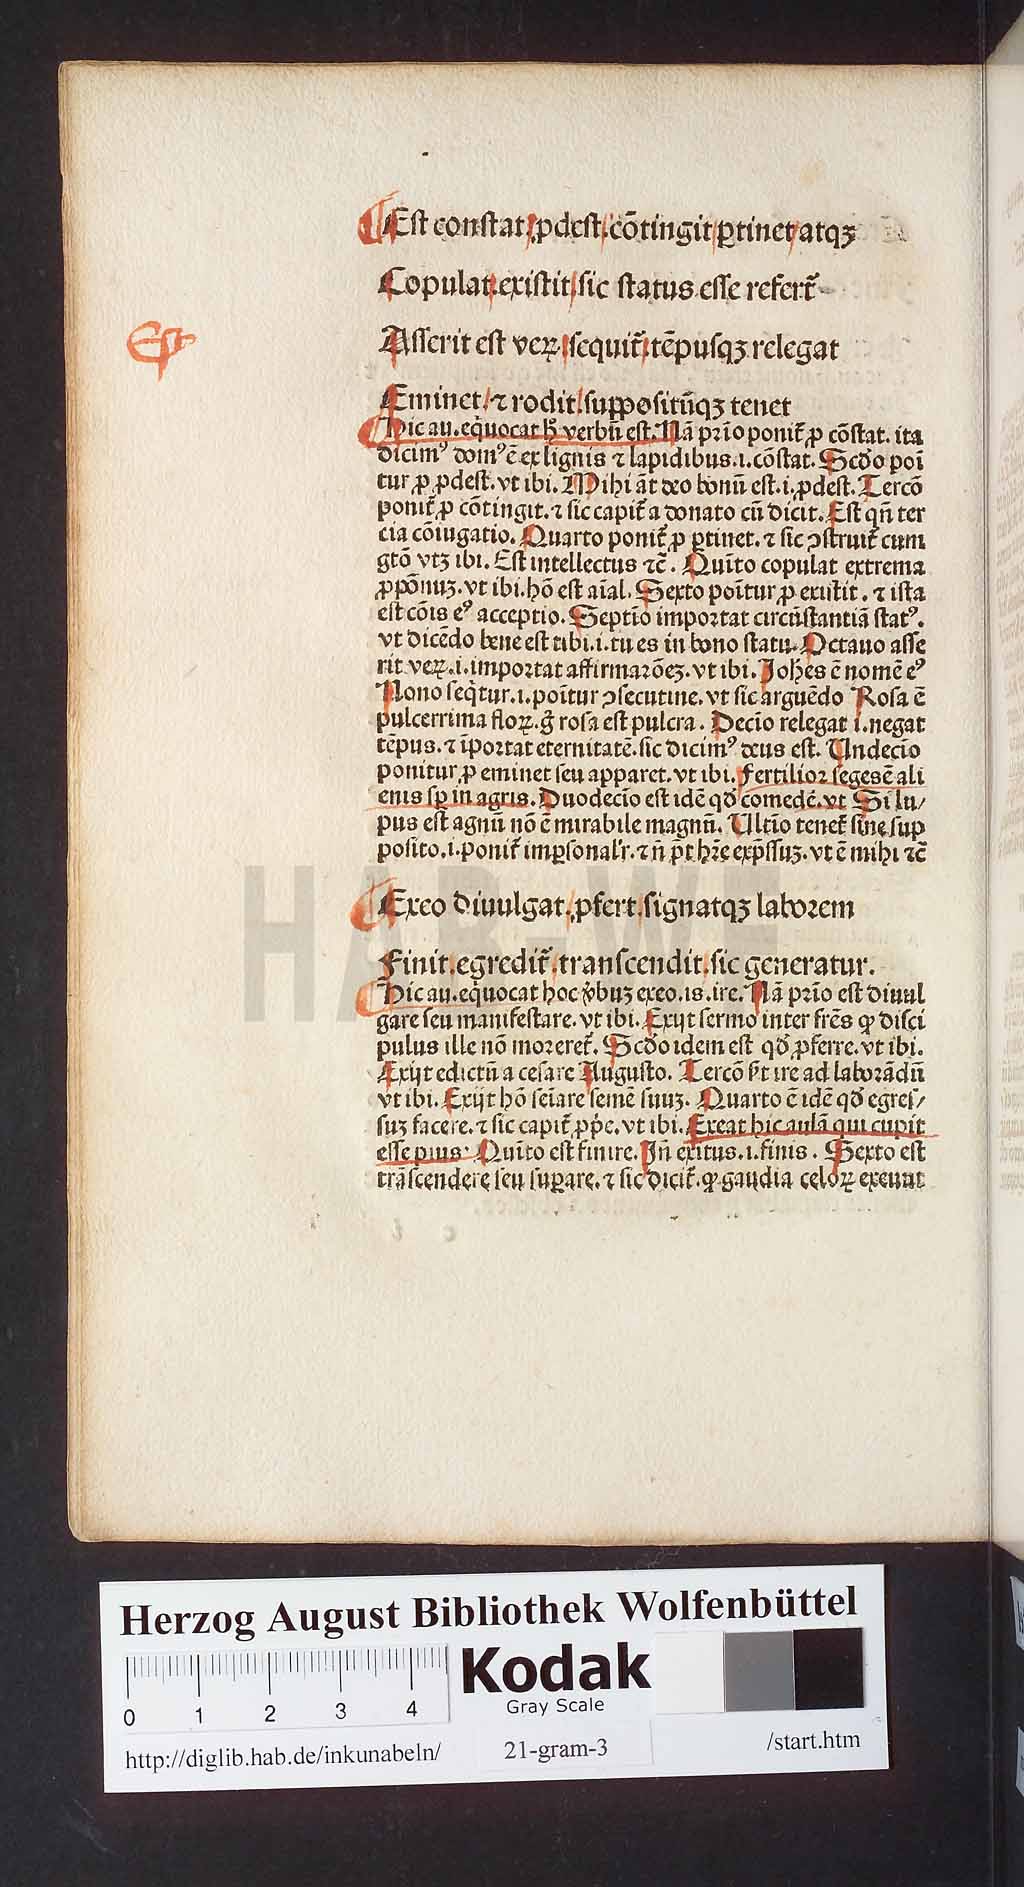 Est constat. ꝓdest. cōtingit ꝑtinet atqꝫ
Copulat existit sic status esse refert᷑
Est
Asserit est verꝝ sequit᷑ tēpusqꝫ relegat
Eminet ⁊ rodit suppositūqꝫ tenet
Hic au. eq̄uocat h̄ verbū est. Nā prīo ponit᷑ ꝓ cōstat. ita
dicimꝰ domꝰ ē ex lignis ⁊ lapidibus .i. cōstat. Scd̄o poī
tur ꝓ ꝓdest. vt ibi. Mihi āt deo bonū est .i. ꝓdest. Tercō
ponit᷑ ꝓ cōtingit. ⁊ sic capit᷑ a donato cū dicit. Est qn̄ ter
cia cōiugatio. Quarto ponit᷑ ꝓ ꝑtinet. ⁊ sic ↄstruit᷑ cum
gtō vtꝫ ibi. Est intellectus ⁊c̄. Quīto copulat extrema
ꝓpōnuꝫ. vt ibi. hō est aīal. Sexto poītur ꝓ existit. ⁊ ista
est cōis eꝰ acceptio. Septīo importat circūstantiā statꝰ.
vt dicēdo bene est tibi .i. tu es in bono statu. Octauo asse
rit verꝝ .i. importat affirmarōeꝫ. vt ibi. Joh̄es ē nomē eꝰ
Nono seq̄tur .i. poītur ↄsecutiue. vt sic arguēdo Rosa ē
pulcerrima floꝝ. g̊ rosa est pulcra. Decīo relegat .i. negat
tēpus. ⁊ īportat eternitatē. sic dicimꝰ deus est. Undecīo
ponitur ꝓ eminet seu apparet. vt ibi. fertilior seges ē ali
enis sꝑ in agris. Duodecīo est idē qd̓ comedē. vt Si lu/
pus est agnū nō ē mirabile magnū. Ultīo tenet᷑ sine sup
posito .i. ponit᷑ imꝑsonal'r. ⁊ n̄ p̄t hr̄e exp̄ssuꝫ. vt ē mihi ⁊c̄
Exeo diuulgat. ꝓfert. signatqꝫ laborem
Finit. egredit᷑. transcendit. sic generatur.
Hic au. eq̄uocat hoc v̄buꝫ exeo. is. ire. Nā prīo est diuul
gare seu manifestare. vt ibi. Exijt sermo inter fr̄es ꝙ disci
pulus ille nō moreret᷑. Scd̄o idem est qd̓ ꝓferre. vt ibi.
Exijt edictū a cesare Augusto. Tercō s̄t ire ad laborādū
vt ibi. Exijt hō seīare semē suuꝫ. Quarto ē idē qd̓ egres/
suꝫ facere. ⁊ sic capit᷑ ꝓpe. vt ibi. Exeat hic aulā qui cupit
esse pius Quīto est finire. Jn̄ exitus .i. finis. Sexto est
trāscendere seu suꝑare. ⁊ sic dicit᷑. ꝙ gaudia celoꝝ exeunt
HAB-WF
Herzog August Bibliothek Wolfenbüttel
0 1 2 3 4
Kodak
Gray Scale
http://diglib.hab.de/inkunabeln/
21-gram-3
/start.htm